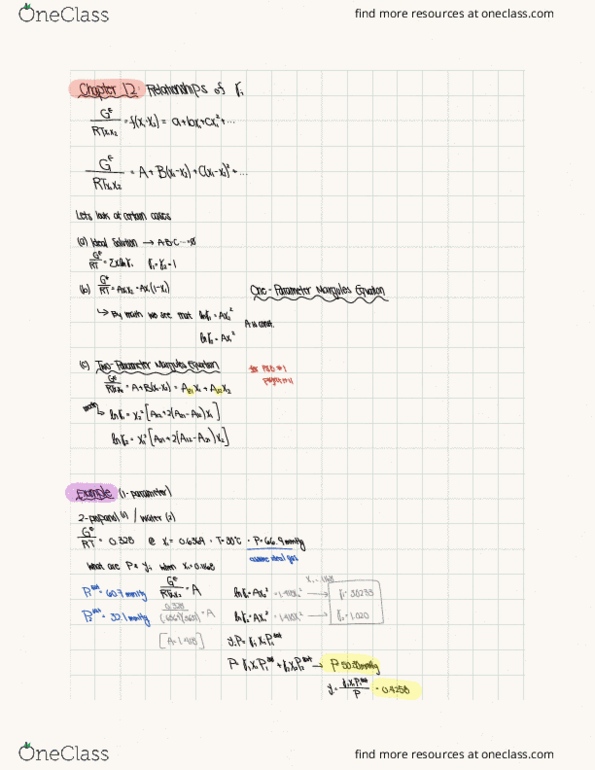 OneClass
find more resources at oneclass.com
Chapter 12: Relationships of γi
G^E/RTx₁x₂ = f(x₁-x₂) = a+bx₁+cx₁²+...
G^E/RTx₁x₂ = A + B(x₁-x₂) + C(x₁-x₂)²+...
Lets look at certain cases
(a) Ideal Solution → A=B=C=...=0
(b) G^E/RT = Ax₁x₂ = Ax₁(1-x₁)
One-Parameter Margules Equation
↳ By math we see that lnγ₁ = Ax₂²
A is const.
lnγ₂ = Ax₁²
(c) Two-Parameter Margules Equation
G^E/RTx₁x₂ = A+B(x₁-x₂) = A₂₁x₁ + A₁₂x₂
math
lnγ₁ = x₂²[A₁₂+2(A₂₁-A₁₂)x₁]
lnγ₂ = x₁²[A₂₁+2(A₁₂-A₂₁)x₂]
Example (1-parameter)
2-propanol (1) / water (2)
G^E/RT = 0.328 @ x₁ = 0.6369 · T=30°C · P=66.9mmHg
assume ideal gas
What are P & y₁ when x₁=0.1168
P₁^sat = 60.7 mmHg
G^E/RTx₁x₂ = A
lnγ₁ = Ax₂² = 1.418x₂²
P₂^sat = 32.1 mmHg
lnγ₂ = Ax₁² = 1.418x₁²
γ₂ = 1.020
[A=1.418]
y₁P = γ₁x₁P₁^sat
P = γ₁x₁P₁^sat + γ₂x₂P₂^sat →
y₁ = γ₁x₁P₁^sat/P = 0.4258
OneClass
find more resources at oneclass.com